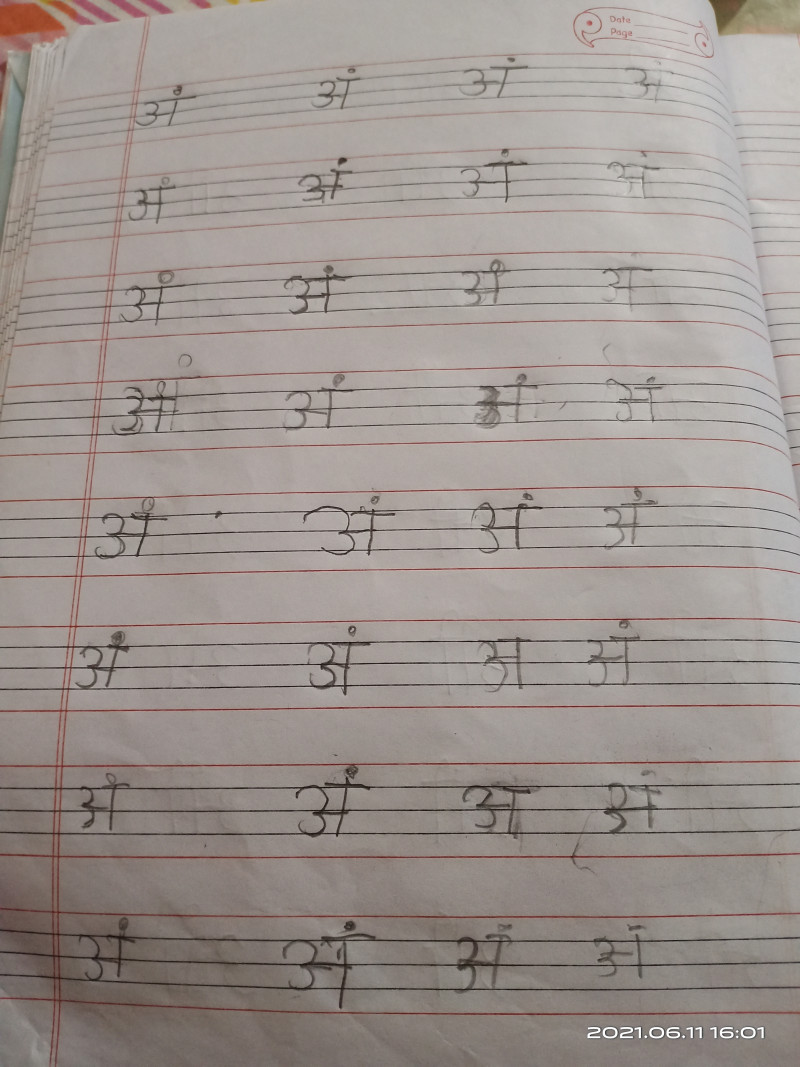 Date
Page
अं अं अं अं
अं अं अं अं
अं अं अं अ
अं अं अं अं
अं अं अं अं
अं अं अ अं
अं अं अ अं
अं अं अं अं
2021.06.11 16:01